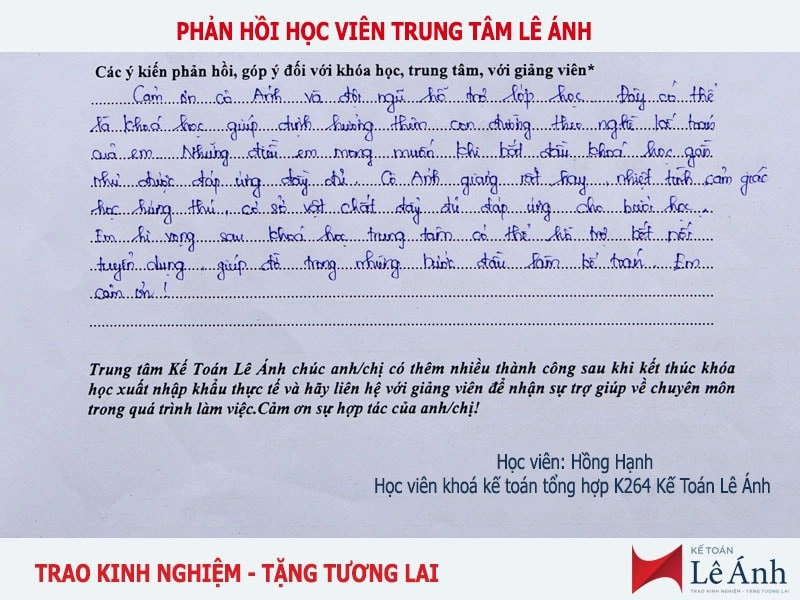 PHẢN HỒI HỌC VIÊN TRUNG TÂM LÊ ÁNH
Các ý kiến phản hồi, góp ý đối với khóa học, trung tâm, với giảng viên*
Cảm ơn cô Anh và đội ngũ hỗ trợ lớp học. Đây có thể
là khoá học giúp định hướng thêm con đường theo nghề kế toán
của em. Những điều em mong muốn khi bắt đầu khoá học gần
như được đáp ứng đầy đủ. Cô Anh giảng rất hay, nhiệt tình cảm giác
học hứng thú, cơ sở vật chất đầy đủ đáp ứng cho buổi học.
Em hi vọng sau khoá học trung tâm có thể hỗ trợ kết nối
tuyển dụng, giúp đỡ trong những bước đầu làm kế toán. Em
cảm ơn!
Trung tâm Kế Toán Lê Ánh chúc anh/chị có thêm nhiều thành công sau khi kết thúc khóa
học xuất nhập khẩu thực tế và hãy liên hệ với giảng viên để nhận sự trợ giúp về chuyên môn
trong quá trình làm việc.Cảm ơn sự hợp tác của anh/chị!
Học viên: Hồng Hạnh
Học viên khoá kế toán tổng hợp K264 Kế Toán Lê Ánh
TRAO KINH NGHIỆM - TẶNG TƯƠNG LAI
KẾ TOÁN
Lê Ánh
TRAO KINH NGHIỆM - TẶNG TƯƠNG LAI